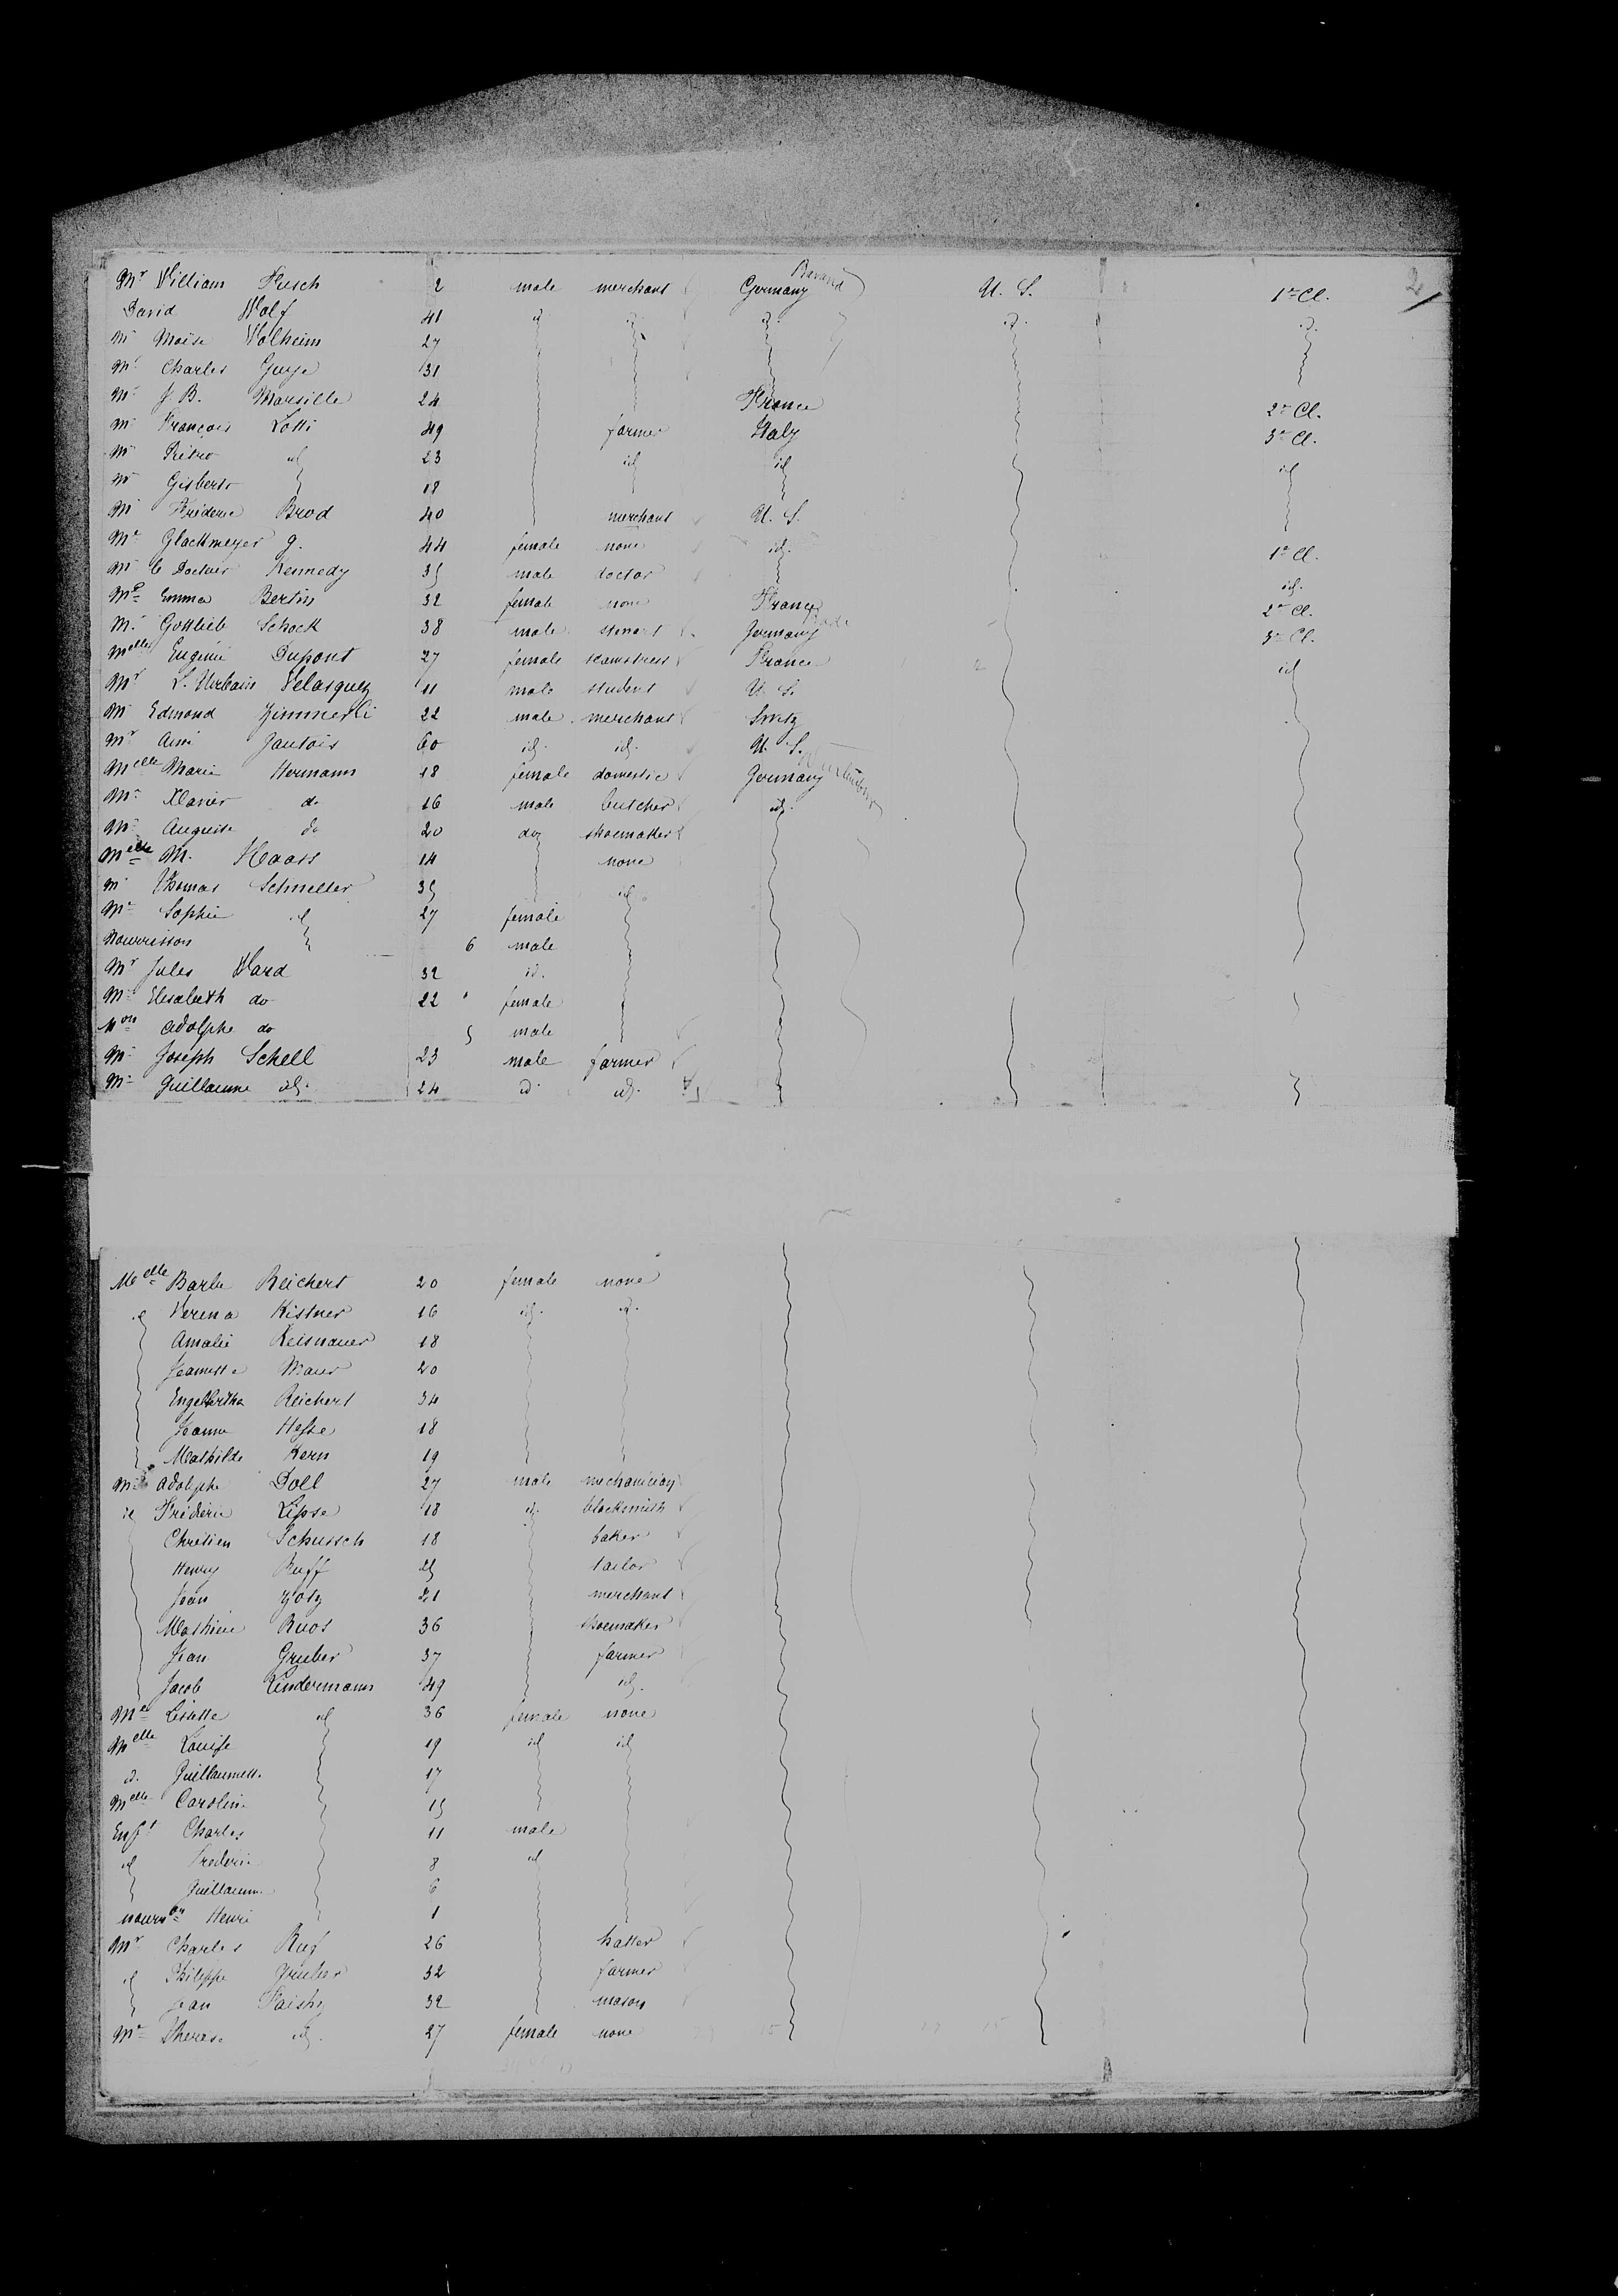 2
Bavaria
Mr William Fresch 2 male merchant Germany U. S. 1re Cl.
David Wolf 41 id id. id. id. id.
Mr Moïse Wolheim 27
Mr Charles Guye 31
Mr J. B. Marsille 24 France 2e Cl.
Mr François Lotti 49 farmer Italy 3e Cl.
Mr Pietro id 23 id id id
Mr Gisberto 18
Mr Fréderic Brod 40 merchant U. S.
Me Glackmeyer g. 44 female none id. 1re Cl.
Mr le Docteur Kennedy 35 male doctor id.
Me Emma Bertin 32 female none France 2e Cl.
Mr Gottlieb Schock 38 male Germany Bade 3e Cl.
Melle Eugénie Dupont 27 female seamstress France id
Mr L. Urbain Velasquez 11 male student U. S.
Mr Edmond Zimmerli 22 male merchant Switz
Mr Aimé Jautois 60 id. id. U. S.
Melle Marie Hermann 18 female domestic Germany
Mr Xavier do 16 male butcher id.
Mr Auguste do 20 do shoemaker
Melle M. Haass 14 none
Mr Thomas Schneller 35 id
Me Sophie id 27 female
Nourrisson 6 male
Mr Jules Ward 32 id.
Me Elisabeth do 22 female
Non Adolphe do 5 male
Mr Joseph Schell 23 male farmer
Mr Guillaume id. 24 id. id.
Melle Barbe Reichert 20 female none
id Verena Kistner 16 id. id.
Amalie Reisnauer 18
Jeannette Maur 20
Engelbertha Reichert 34
Jeanne Hesse 18
Mathilde Kern 19
Mr Adolphe Doll 27 male mechanician
id Fréderic Lipse 18 id. blacksmith
Chrétien Schussch 18 baker
Henry Ruff 25 tailor
Jean Yotz 21 merchant
Mathieu Ruos 36 shoemaker
Jean Gruber 37 farmer
Jacob Lindermann 49 id.
Me Lisette id 36 female none
Melle Louise 19 id id
id. Guillaumette 17
Melle Caroline 15
Enft Charles 11 male
id Frederic 8 id
Guillaume 6
nourron Henri 1
Mr Charles Ruf 26 hatter
id Philippe Gruber 32 farmer
Jean Faisht 32 mason
Me Therese id. 27 female none